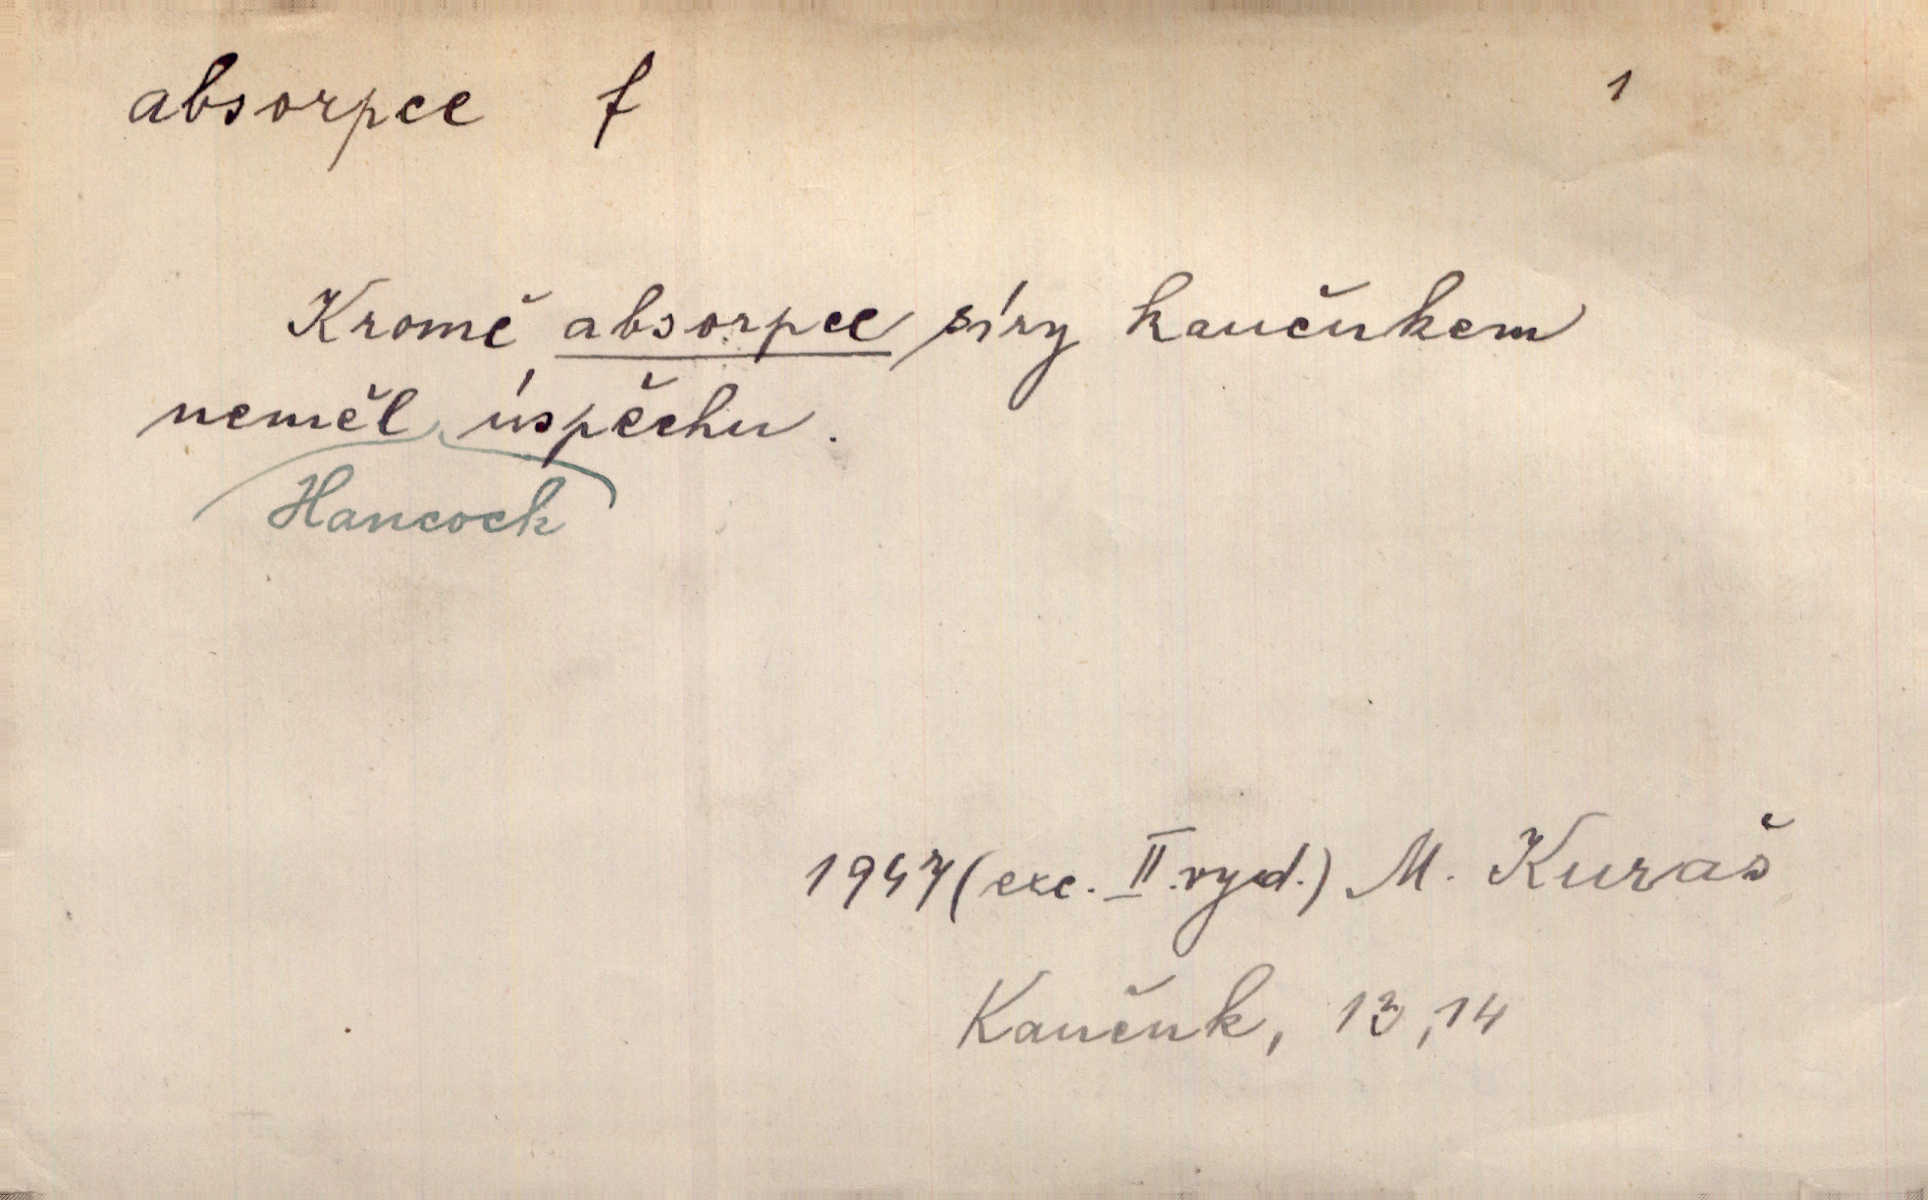 absorpce f 1
Kromě absorpce síry kaučukem
neměl úspěchu.
Hancock
1947 (exc. II. vyd.) M. Kuraš
Kaučuk, 13, 14